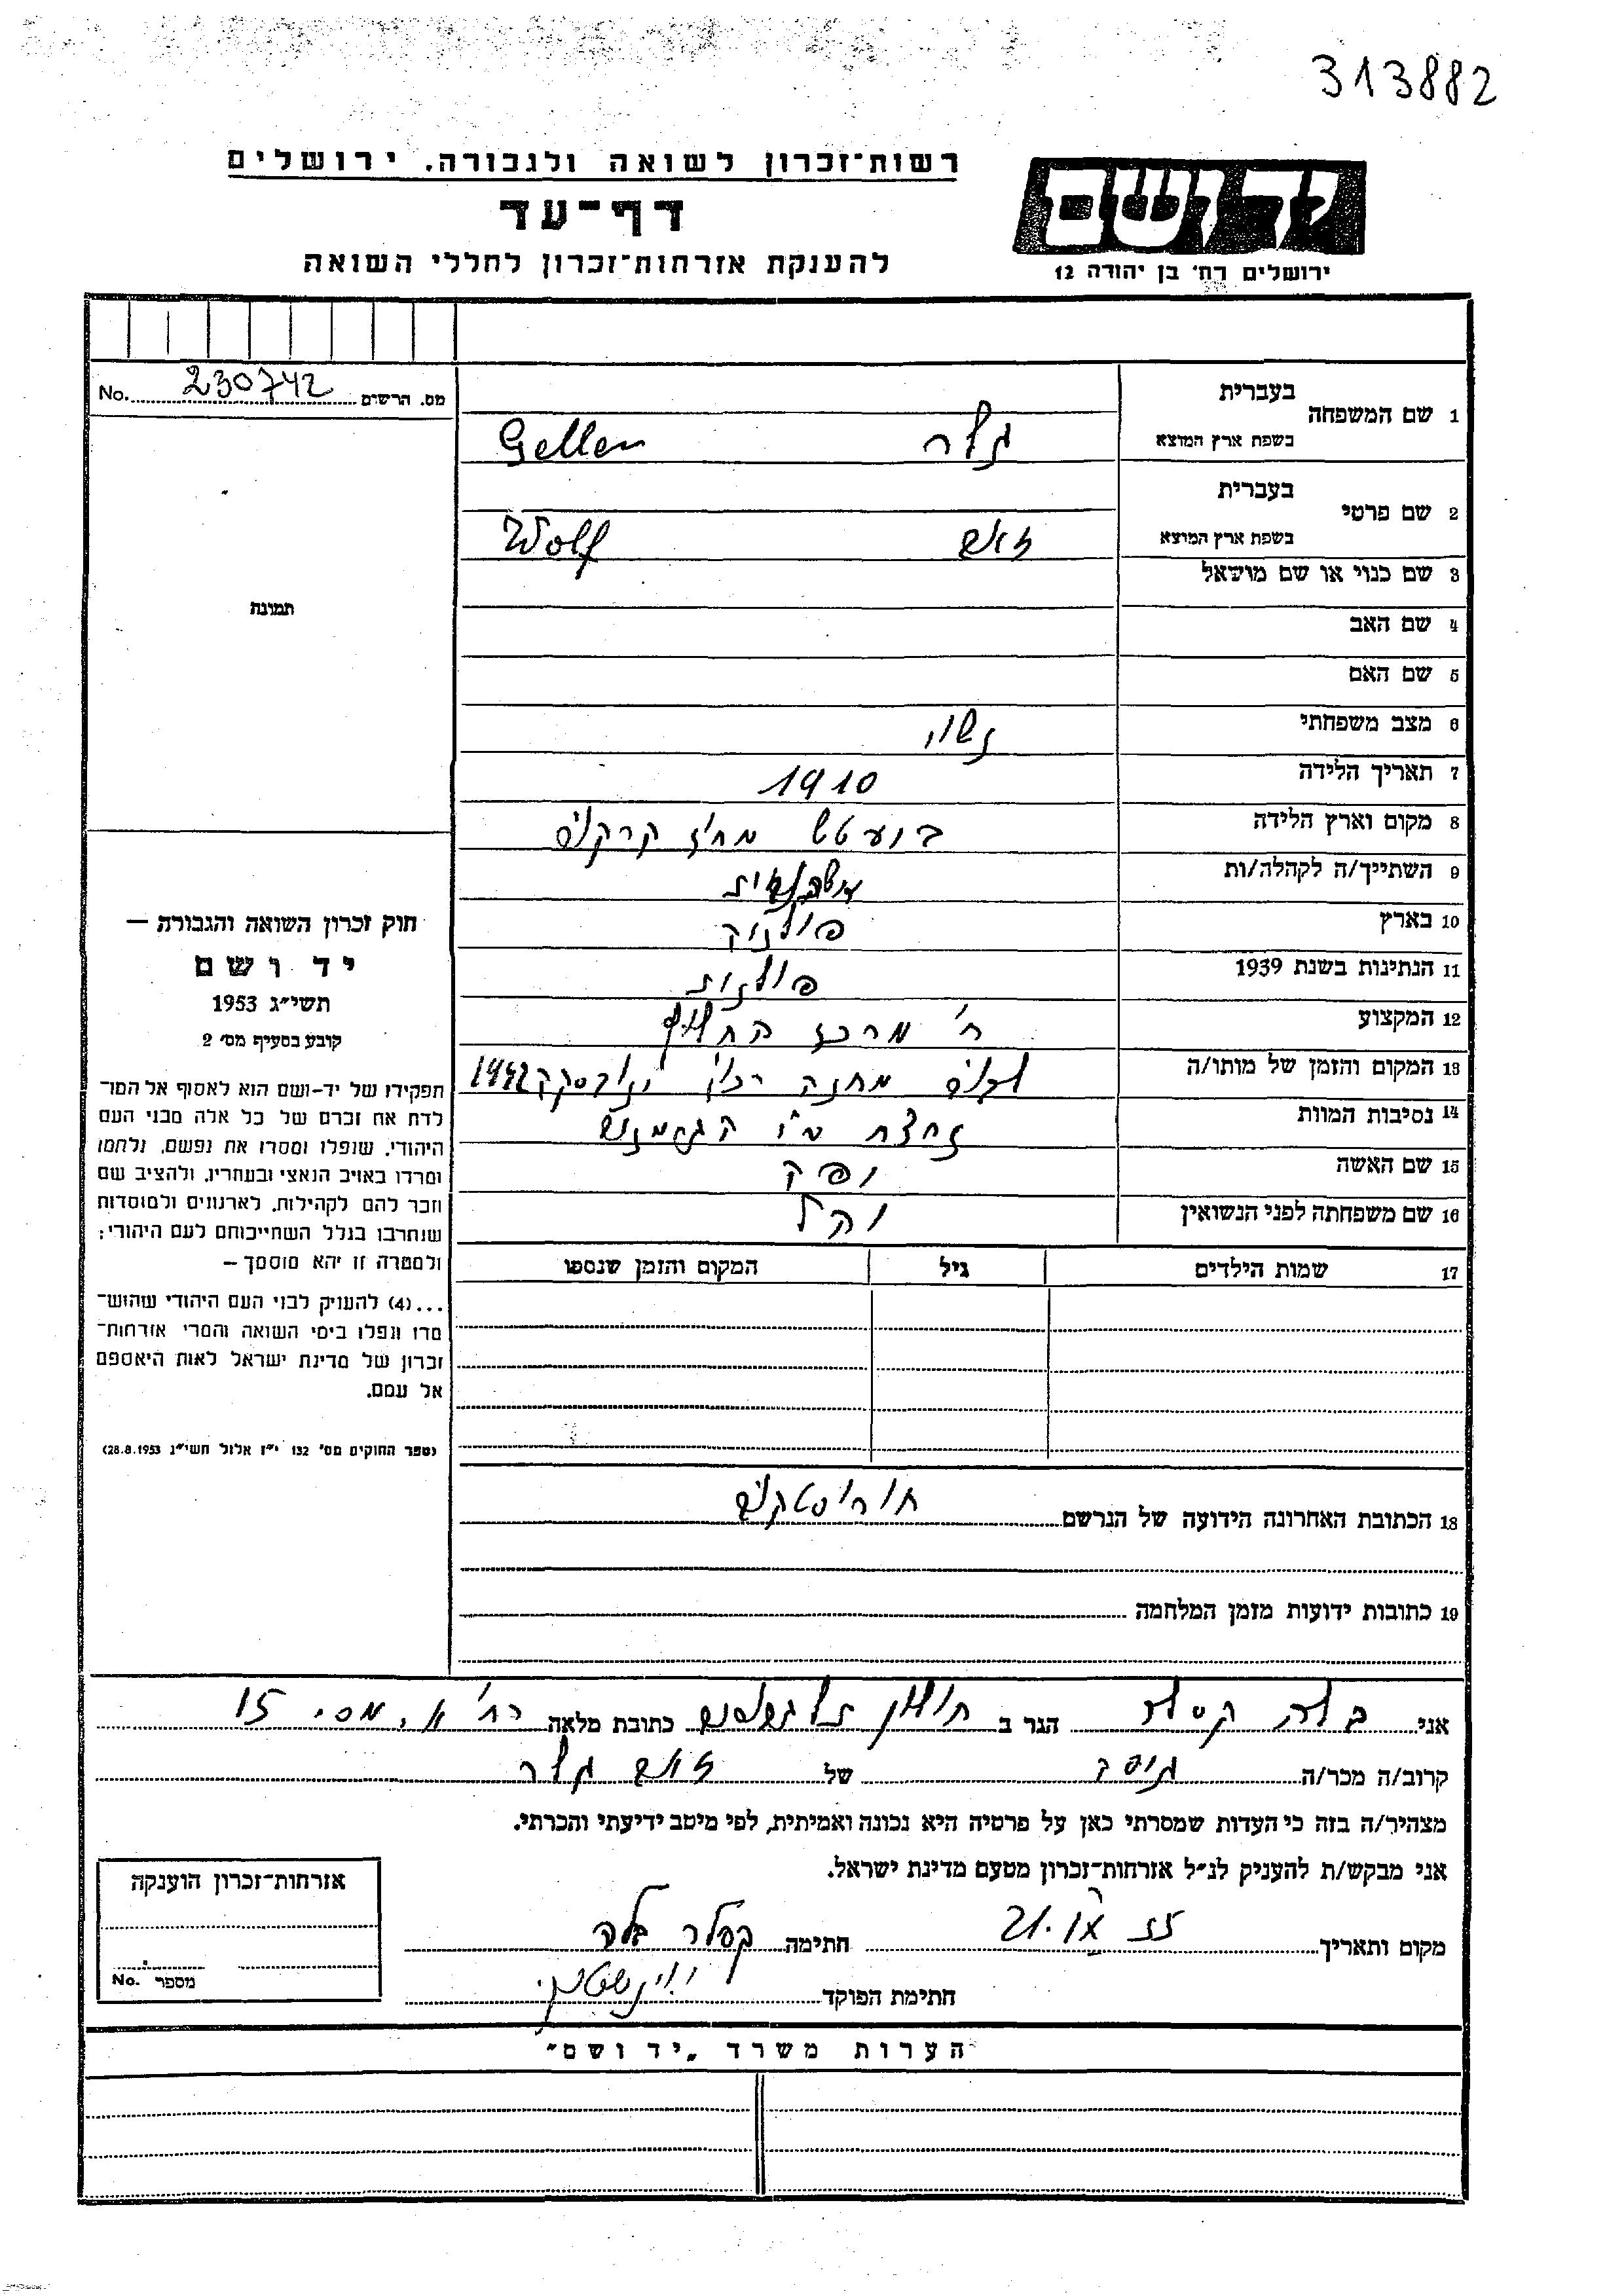 313882
רשות־זכרון לשואה ולגבורה. ירושלים
דף־עד
להענקת אזרחות־זכרון לחללי השואה
יד ושם
ירושלים רח׳ בן יהודה 12
No. 230742 מס. הרשים
1 שם המשפחה
בעברית
בשפת ארץ המוצא
גלר Geller
2 שם פרטי
בעברית
בשפת ארץ המוצא
זאב Wolf
3 שם כנוי או שם מושאל
4 שם האב
5 שם האם
6 מצב משפחתי נשוי
7 תאריך הלידה 1910
8 מקום וארץ הלידה מחוז
9 השתייך/ה לקהלה/ות
10 בארץ פולניה
11 הנתינות בשנת 1939 פולנית
12 המקצוע
13 המקום והזמן של מותו/ה מחנה 1942
14 נסיבות המוות נרצח ע״י הגרמנים
15 שם האשה
16 שם משפחתה לפני הנשואין
17 שמות הילדים גיל המקום והזמן שנספו
18 הכתובת האחרונה הידועה של הנרשם
19 כתובות ידועות מזמן המלחמה
תמונה
חוק זכרון השואה והגבורה —
יד ושם
תשי״ג 1953
קובע בסעיף מס׳ 2
תפקידו של יד-ושם הוא לאסוף אל המו־
לדת את זכרם של כל אלה מבני העם
היהודי, שנפלו ומסרו את נפשם, נלחמו
ומרדו באויב הנאצי ובעוזריו, ולהציב שם
וזכר להם לקהילות, לארגונים ולמוסדות
שנחרבו בגלל השתייכותם לעם היהודי;
ולמטרה זו יהא מוסמך —
...(4) להעניק לבני העם היהודי שהוש־
מדו ונפלו בימי השואה והמרי אזרחות־
זכרון של מדינת ישראל לאות היאספם
אל עמם.
(ספר החוקים מס׳ 132 י״ז אלול תשי״ג 28.8.1953)
אני בלה קסלר הגר ב חולון כתובת מלאה רח׳ א. מס. 15
קרוב/ה מכר/ה של זאב גלר
מצהיר/ה בזה כי העדות שמסרתי כאן על פרטיה היא נכונה ואמיתית, לפי מיטב ידיעתי והכרתי.
אני מבקש/ת להעניק לנ״ל אזרחות־זכרון מטעם מדינת ישראל.
מקום ותאריך חתימה קסלר בלה
חתימת הפוקד
אזרחות־זכרון הוענקה
No. מספר
הערות משרד „יד ושם״